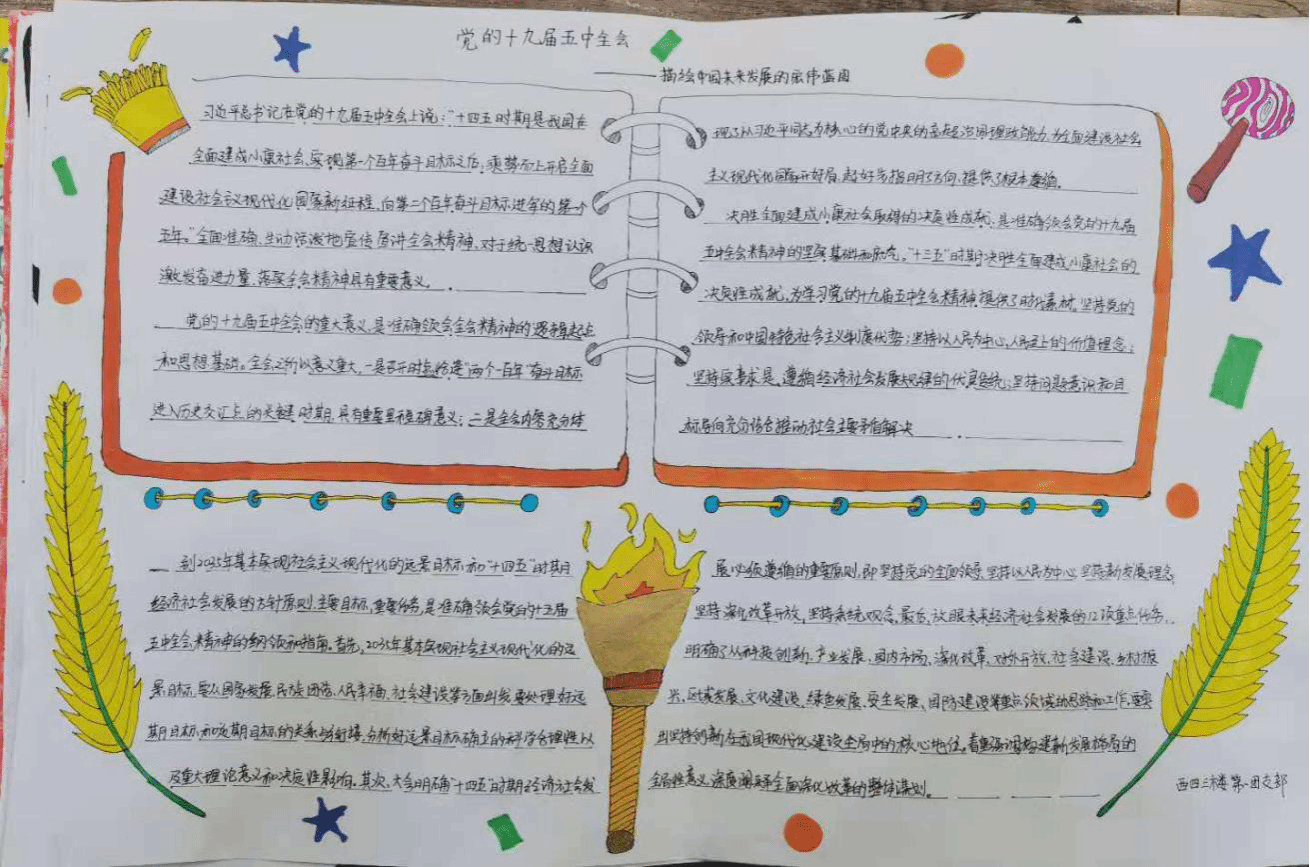 党的十九届五中全会
——描绘中国未来发展的宏伟蓝图
习近平总书记在党的十九届五中全会上说：“十四五时期是我国在
全面建成小康社会、实现第一个百年奋斗目标之后，乘势而上开启全面
建设社会主义现代化国家新征程，向第二个百年奋斗目标进军的第一个
五年。”全面准确、生动活泼地宣传宣讲全会精神，对于统一思想认识
激发奋进力量，落实全会精神具有重要意义。
党的十九届五中全会的重大意义，是准确领会全会精神的逻辑起点
和思想基础。全会之所以意义重大，一是召开时恰恰是“两个一百年”奋斗目标
进入历史交汇点的关键时期，具有重要里程碑意义；二是全会内容充分体
现了以习近平同志为核心的党中央的高超治国理政能力，为全面建设社会
主义现代化国家开好局、起好步指明了方向，提供了根本遵循。
决胜全面建成小康社会取得的决定性成就，是准确领会党的十九届
五中全会精神的坚实基础和励志。“十三五”时期决胜全面建成小康社会的
决定性成就，为学习党的十九届五中全会精神，提供了时代素材。坚持党的
领导和中国特色社会主义制度优势；坚持以人民为中心，人民至上的价值理念；
坚持实事求是、遵循经济社会发展规律的优良传统；坚持问题意识和目
标导向充分结合推动社会主要矛盾解决
到2035年基本实现社会主义现代化的远景目标和“十四五”时期
经济社会发展的方针原则、主要目标、重要任务，是准确领会党的十五届
五中全会精神的纲领和指南。首先，2035年基本实现社会主义现代化的远
景目标，要从国家发展、民族团结、人民幸福、社会建设等方面出发，要处理好远
期目标和近期目标的关系与衔接，分析好远景目标确立的科学合理性以
及重大理论意义和决定性影响。其次，大会明确“十四五”时期经济社会发
展必须遵循的重要原则，即坚持党的全面领导，坚持以人民为中心，坚持新发展理念，
坚持深化改革开放，坚持系统观念。最后，放眼未来经济社会发展的12项重点任务，
明确了从科技创新、产业发展、国内市场、深化改革、对外开放、社会建设、乡村振
兴、区域发展、文化建设、绿色发展、安全发展、国防建设等重点领域的思路和工作，要突
出坚持创新在我国现代化建设全局中的核心地位。着重强调构建新发展格局的
全局性意义，深度阐释全面深化改革的整体谋划。
西四三楼第一团支部